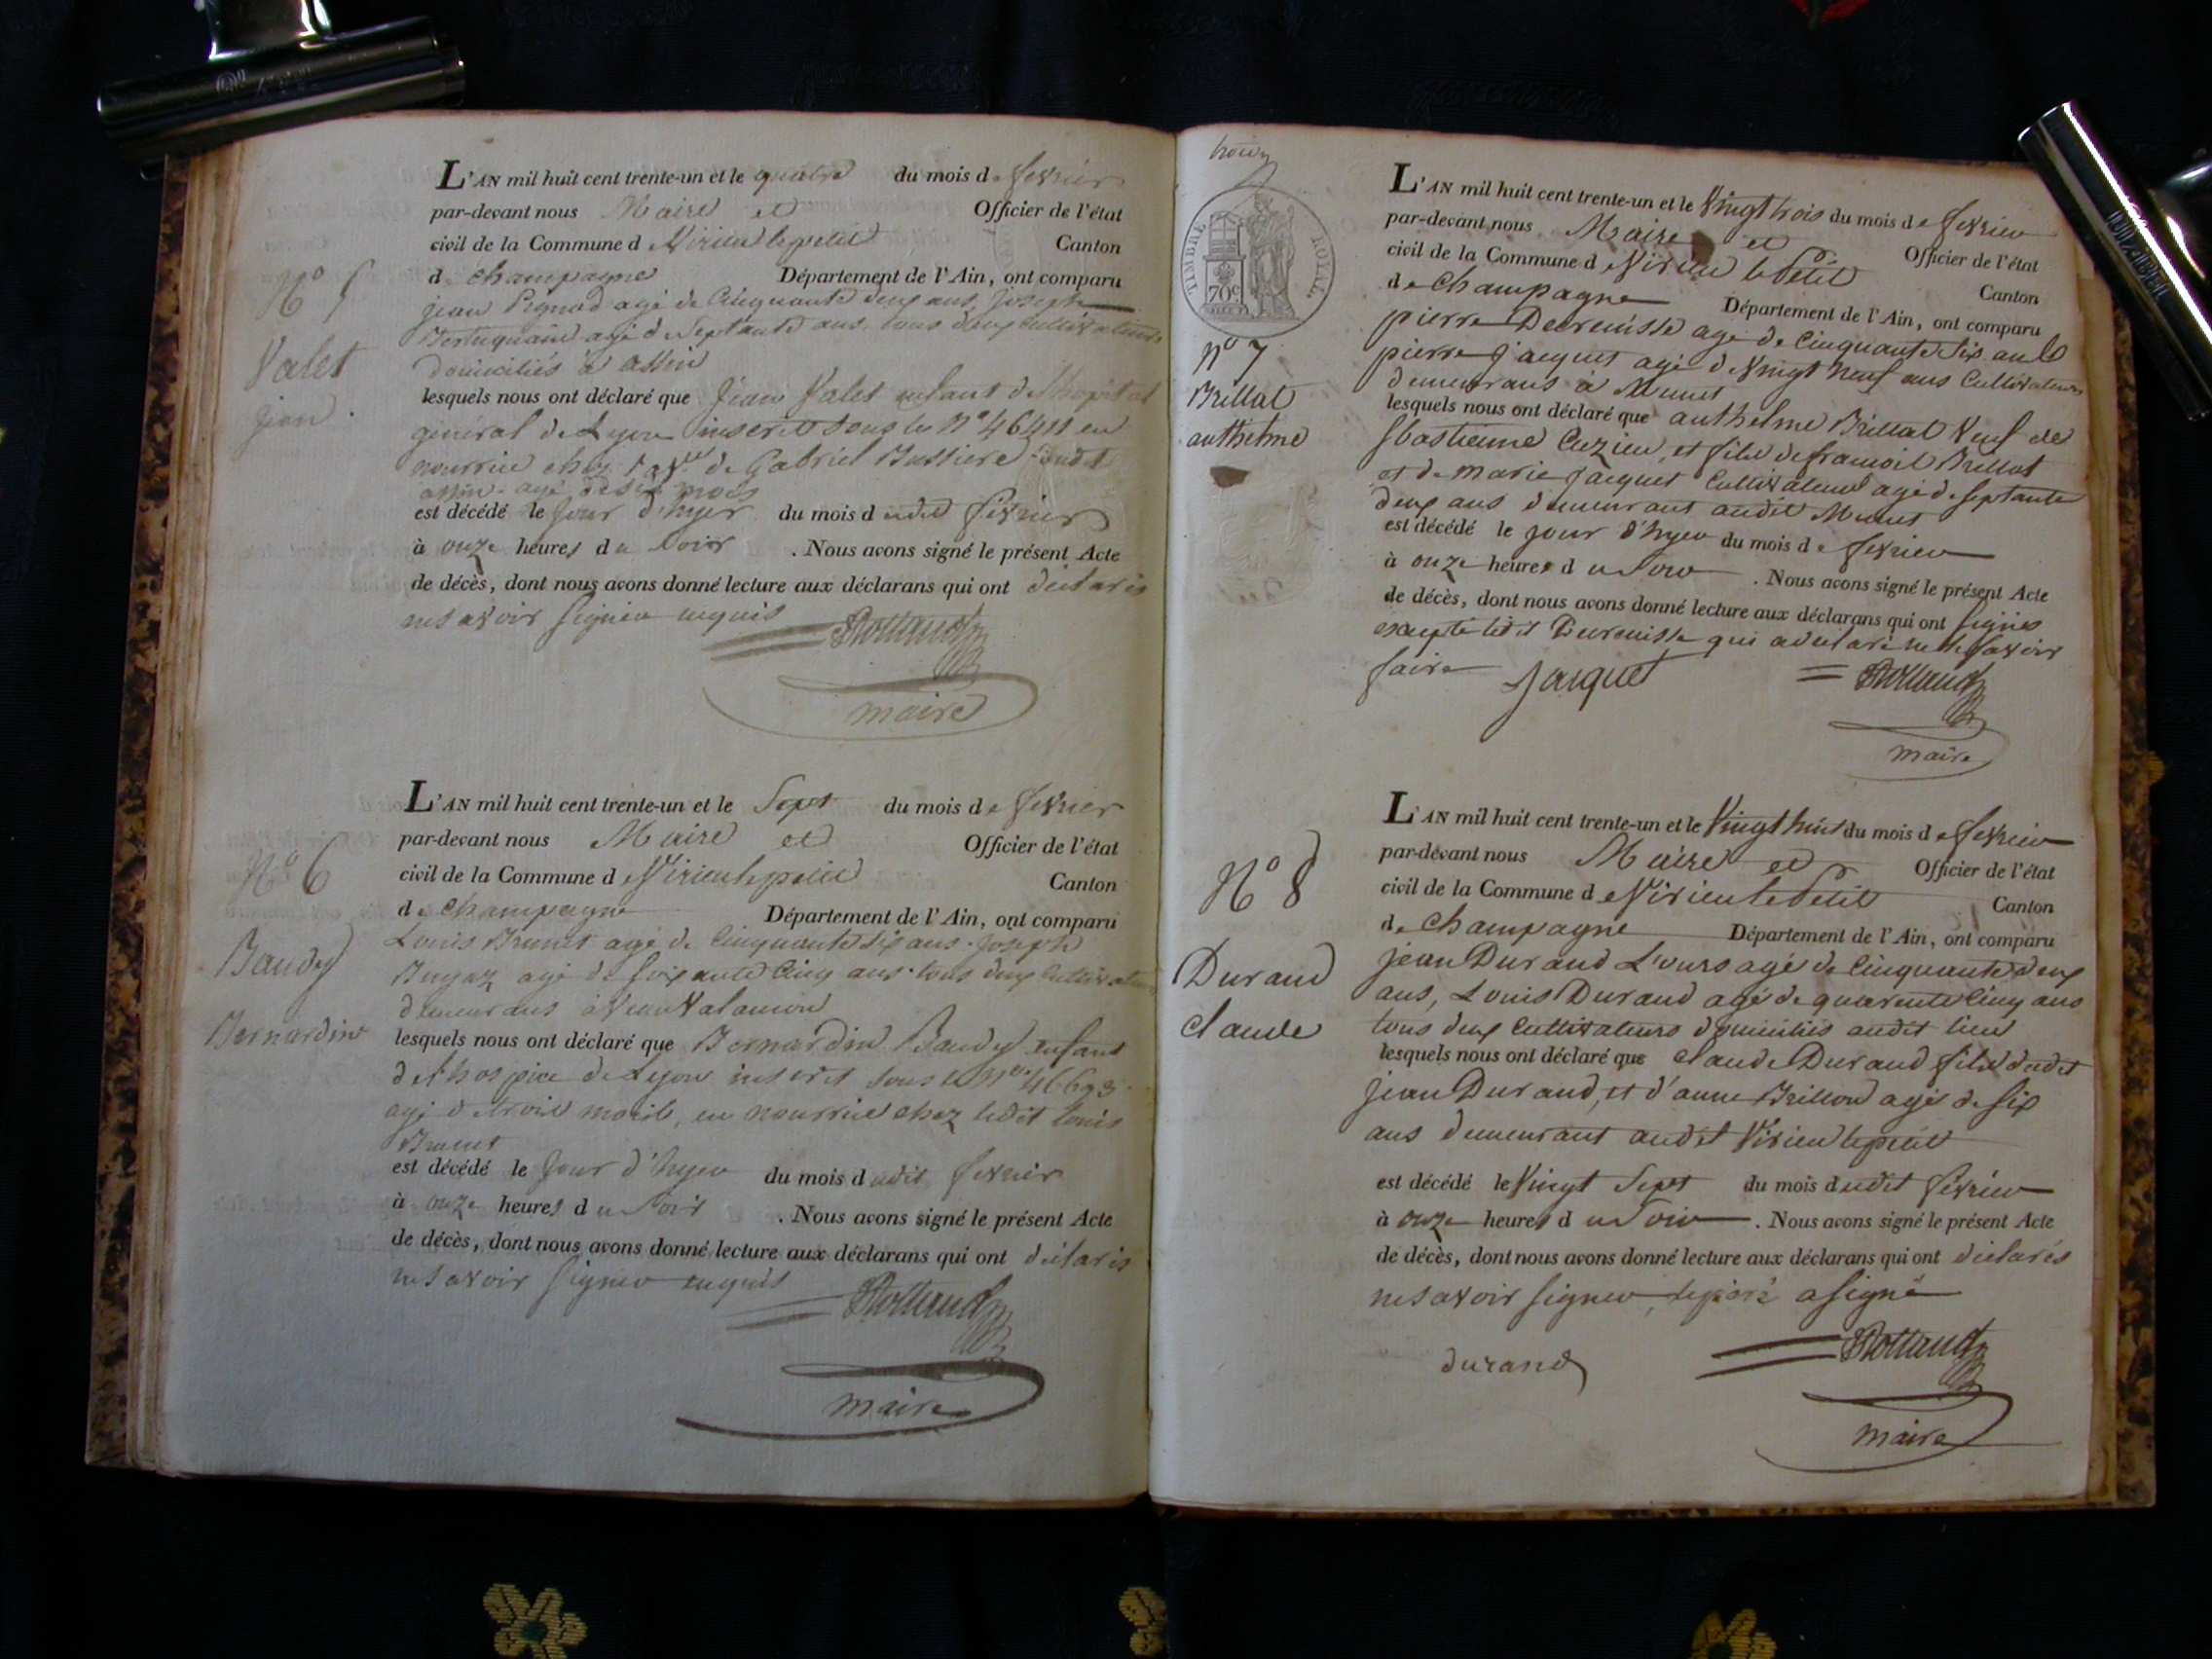 L'AN mil huit cent trente-un et le quatre du mois de fevrier
par-devant nous Maire et Officier de l'état
civil de la Commune de Virieu lepetit Canton
de Champagne Département de l'Ain, ont comparu
N° 5
jean Pignod agé de Cinquante deux ans, joseph
agé de Septante ans, tous deux cultivateurs
Valet
domiciliés à assin
jean
lesquels nous ont déclaré que jean Valet enfant de l'hopital
général de Lyon inscrit sous le n° 46411 en
nourrice chez de Gabriel Bussiere
assin agé de six mois
est décédé le jour d'hyer du mois dudit fevrier
à onze heures du soir . Nous avons signé le présent Acte
de décès, dont nous avons donné lecture aux déclarans qui ont déclarés
ne savoir signer requis
Rolland
maire
L'AN mil huit cent trente-un et le Sept du mois de fevrier
par-devant nous Maire et Officier de l'état
N° 6
civil de la Commune de Virieu lepetit Canton
de Champagne Département de l'Ain, ont comparu
Louis Brunet agé de Cinquante six ans. joseph
Baudy
agé de soixante Cinq ans. tous deux cultivateurs
demeurans à
Bernardin
lesquels nous ont déclaré que Bernardin Baudy enfant
de l'hospice de Lyon inscrit sous le n° 46693
agé de trois mois, en nourrice chez ledit Louis
Brunet
est décédé le jour d'hyer du mois dudit fevrier
à onze heures du soir . Nous avons signé le présent Acte
de décès, dont nous avons donné lecture aux déclarans qui ont déclarés
ne savoir signer requis
Rolland
maire
TIMBRE ROYAL
70c
L'AN mil huit cent trente-un et le Vingt trois du mois de fevrier
par-devant nous Maire et Officier de l'état
civil de la Commune de Virieu le Petit Canton
de Champagne Département de l'Ain, ont comparu
N° 7
pierre Decrouisse agé de Cinquante six ans
pierre jacquet agé de Vingt neuf ans Cultivateurs
Brillat
demeurans à Munet
anthelme
lesquels nous ont déclaré que anthelme Brillat Veuf de
Sbastienne Cuzieu, et fils de francois Brillat
et de marie jacquet Cultivateur agé de septante
deux ans demeurant audit Munet
est décédé le jour d'hyer du mois de fevrier
à onze heures du soir . Nous avons signé le présent Acte
de décès, dont nous avons donné lecture aux déclarans qui ont signés
excepté ledit Decrouisse qui a déclaré ne le savoir
faire
Jacquet
Rolland
maire
L'AN mil huit cent trente-un et le Vingt huit du mois de fevrier
par-devant nous Maire et Officier de l'état
N° 8
civil de la Commune de Virieu le Petit Canton
de Champagne Département de l'Ain, ont comparu
Durand
jean Durand L'ours agé de Cinquante deux
ans, Louis Durand agé de quarente Cinq ans
claude
tous deux Cultivateurs domiciliés audit lieu
lesquels nous ont déclaré que claude Durand fils dudit
jean Durand, et d'anne Brillon agé de six
ans demeurant audit Virieu lepetit
est décédé le Vingt Sept du mois dudit fevrier
à onze heures du soir . Nous avons signé le présent Acte
de décès, dont nous avons donné lecture aux déclarans qui ont déclarés
ne savoir signer, le père a signé
durand
Rolland
maire